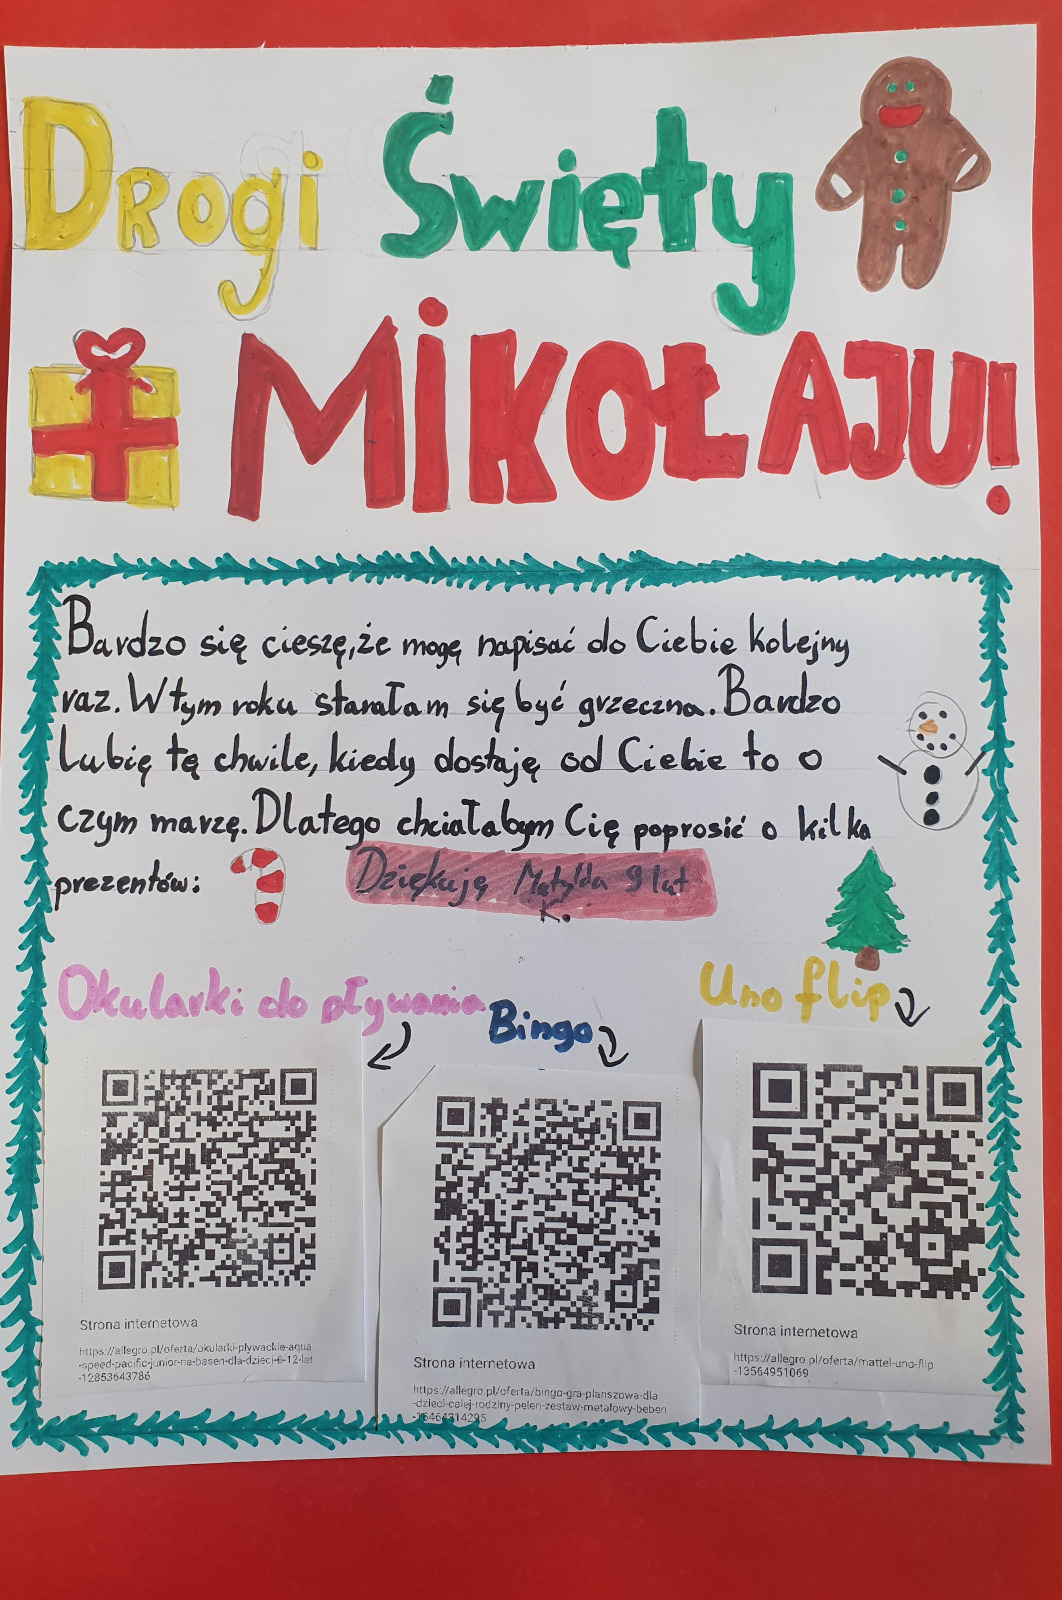 Drogi Święty
MIKOŁAJU!
Bardzo się cieszę, że mogę napisać do Ciebie kolejny
raz. W tym roku starałam się być grzeczna. Bardzo
lubię tę chwile, kiedy dostaję od Ciebie to o
czym marzę. Dlatego chciałabym Cię poprosić o kilka
prezentów:
Dziękuję Matylda 9 lat
K.
Okularki do pływania
Bingo
Uno flip
Strona internetowa
https://allegro.pl/oferta/okularki-plywackie-aqua
-speed-pacific-junior-na-basen-dla-dzieci-6-12-lat
-12853643786
Strona internetowa
https://allegro.pl/oferta/bingo-gra-planszowa-dla
-dzieci-calej-rodziny-pelen-zestaw-metalowy-beben
Strona internetowa
https://allegro.pl/oferta/mattel-uno-flip
-13564951069